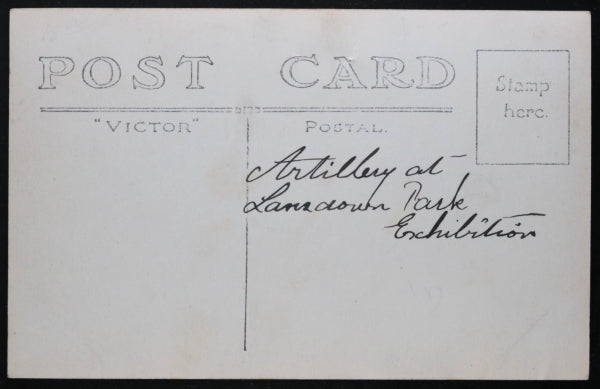 POST CARD
"VICTOR" POSTAL.
Stamp
here.
Artillery at
Lansdown Park
Exhibition